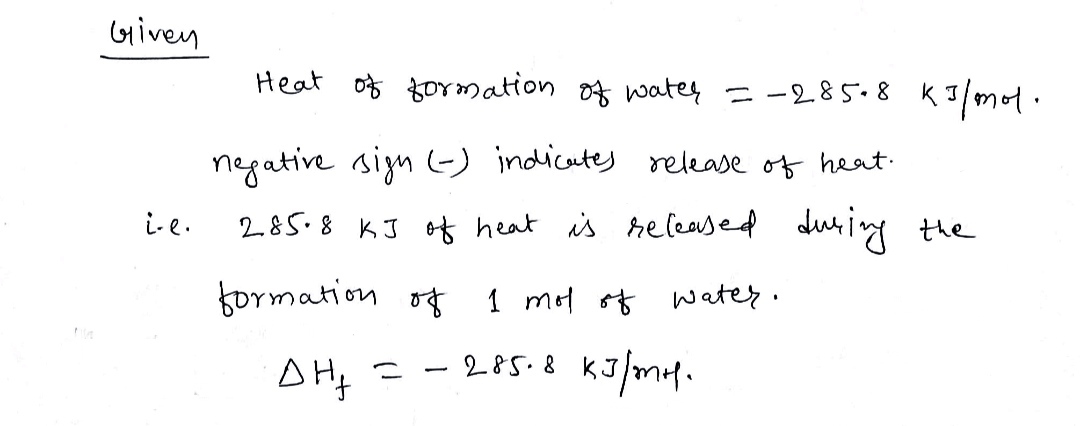 Given
Heat of formation of water = -285.8 KJ/mol.
negative sign (-) indicates release of heat.
i.e. 285.8 KJ of heat is released during the
formation of 1 mol of water.
ΔHf = - 285.8 KJ/mol.